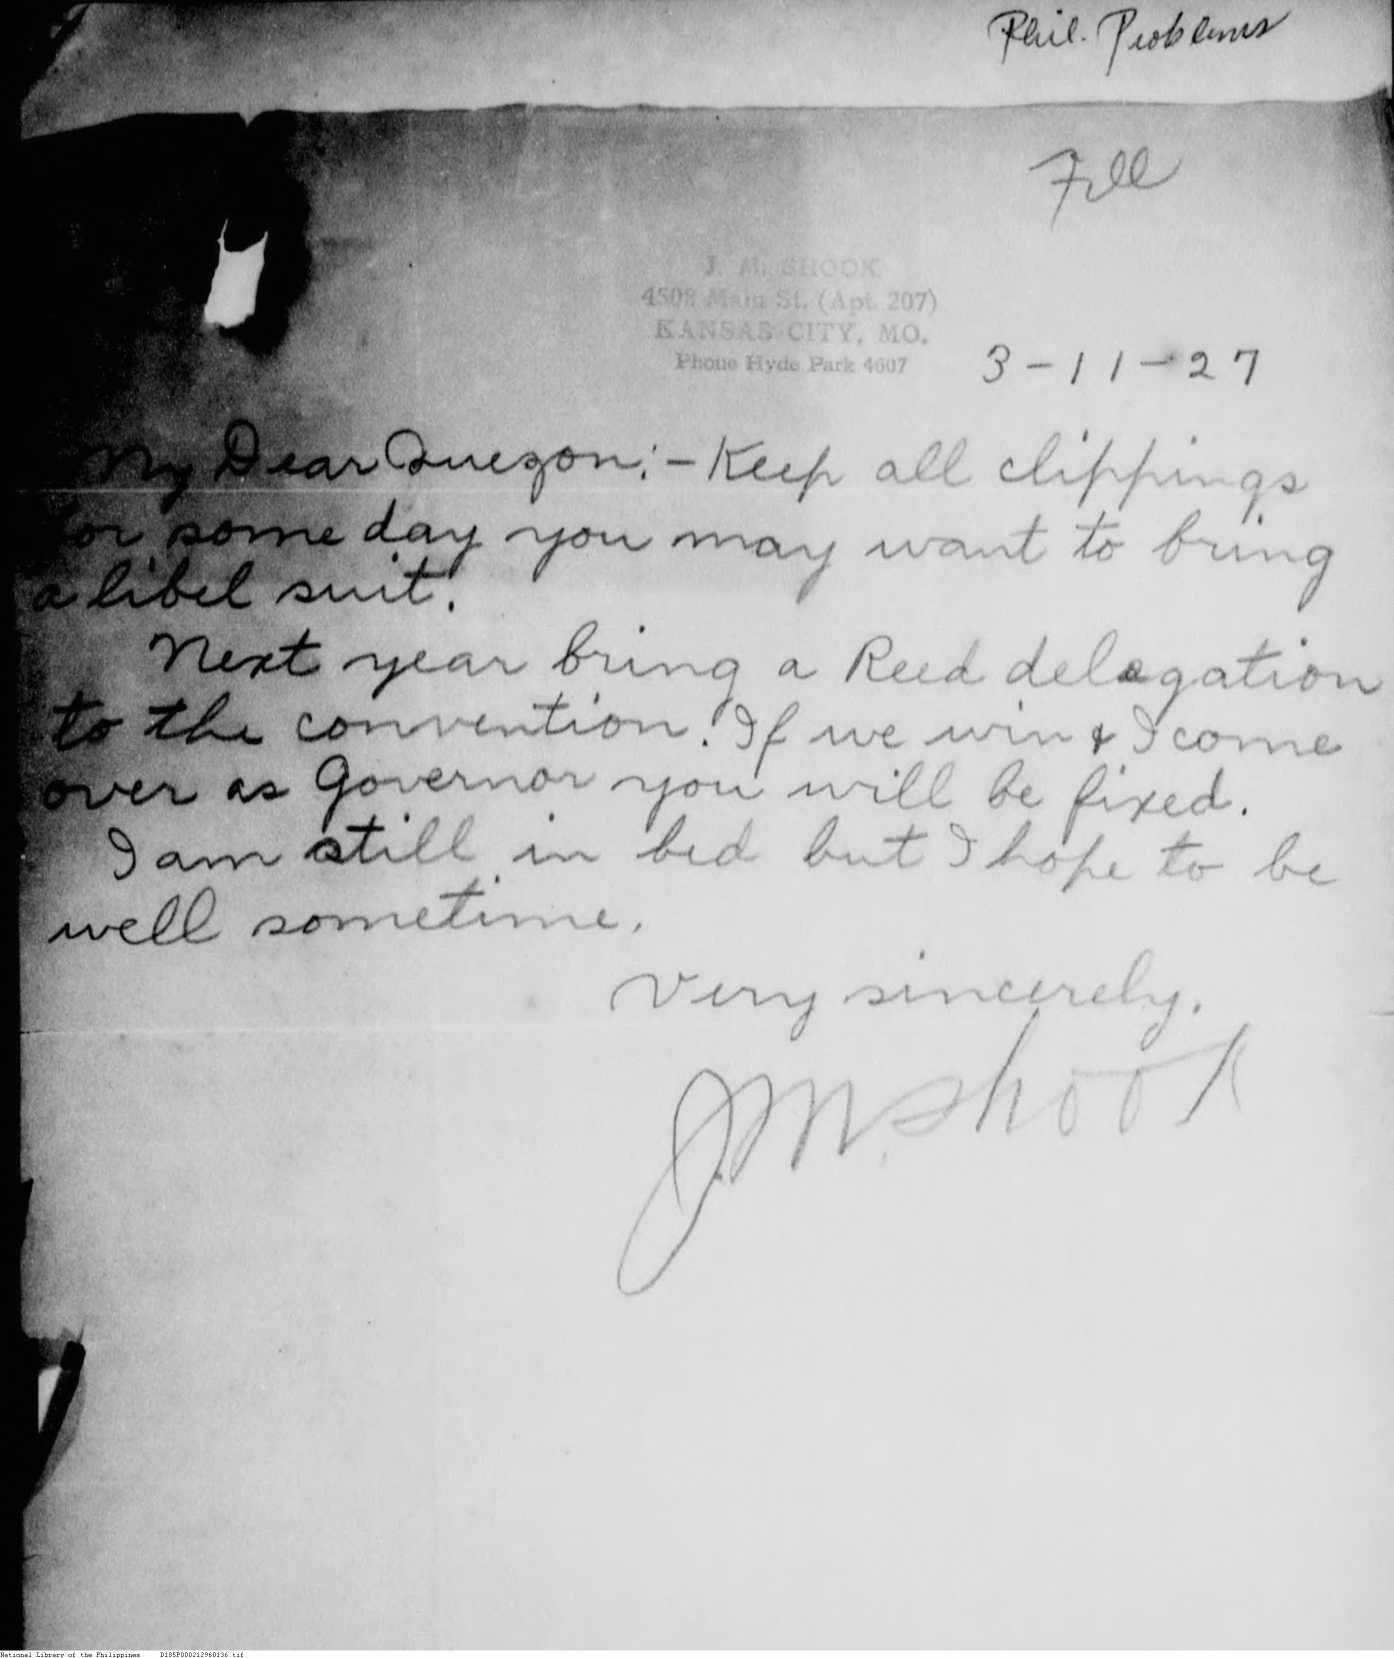 Phil. Problems
File
J. M. SHOOK
4508 Main St. (Apt. 207)
KANSAS CITY, MO.
Phone Hyde Park 4607
3-11-27
My Dear Quezon:- Keep all clippings
for some day you may want to bring
a libel suit.
Next year bring a Reed delegation
to the convention. If we win & I come
over as Governor you will be fixed.
I am still in bed but I hope to be
well sometime.
Very sincerely,
J. M. Shook
National Library of the Philippines D185P000212960136.tif